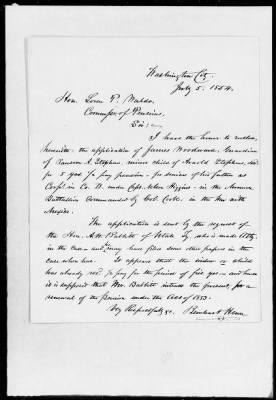 Washington City
July 5. 1854.
Hon. Loren P. Waldo,
Commisr of Pensions,
Sir:
I have the honor to enclose,
herewith the application of James Woodward, Guardian
of Ransom A. Stephens, minor child of Arnold Stephens, decd
for 5 years ½ pay pension – for services of his father as
Corpl in Co. D. under Capt. Nelson Higgins – in the Mormon
Battalion commanded by Col. Cooke, in the War with
Mexico.
The application is sent by the request of
the Hon. A. W. Babbitt of Utah Ty., who is made Atty.
in the case – and may have filed some other papers in the
case when here. It appears that the widow or child
has already recd. ½ pay for the period of five yrs – and hence
it is supposed that Mr. Babbitt intends the present for a
renewal of the pension under the Act of 1853.
Very Respectfully &c. Bernhart Henn